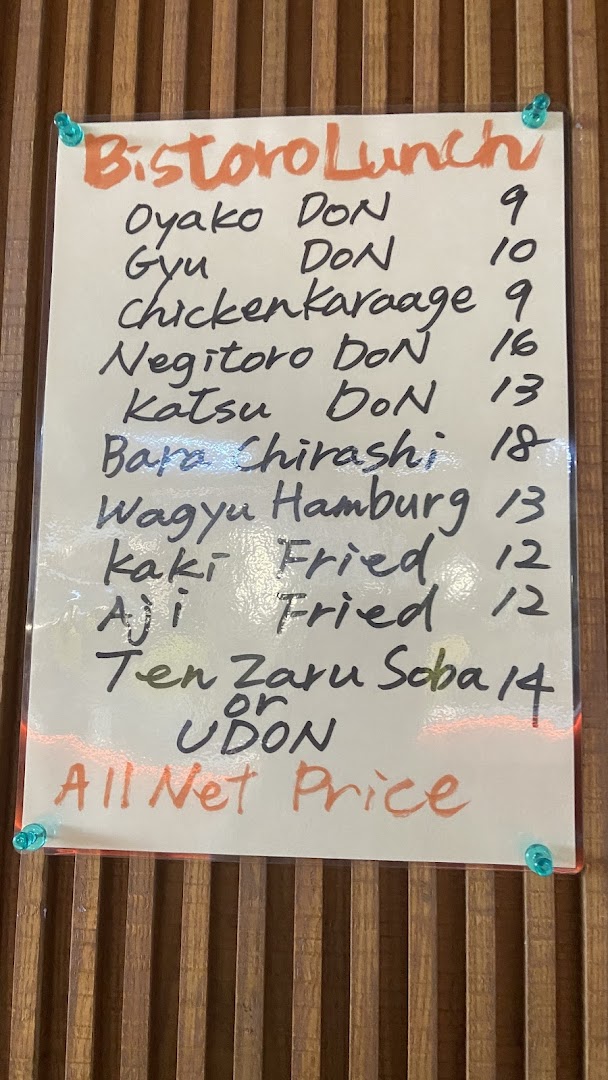 BistoroLunch
Oyako DoN 9
Gyu DoN 10
chickenKaraage 9
Negitoro DoN 16
Katsu DoN 13
Bara Chirashi 18
Wagyu Hamburg 13
Kaki Fried 12
Aji Fried 12
Ten Zaru Soba 14
or
UDON
All Net Price